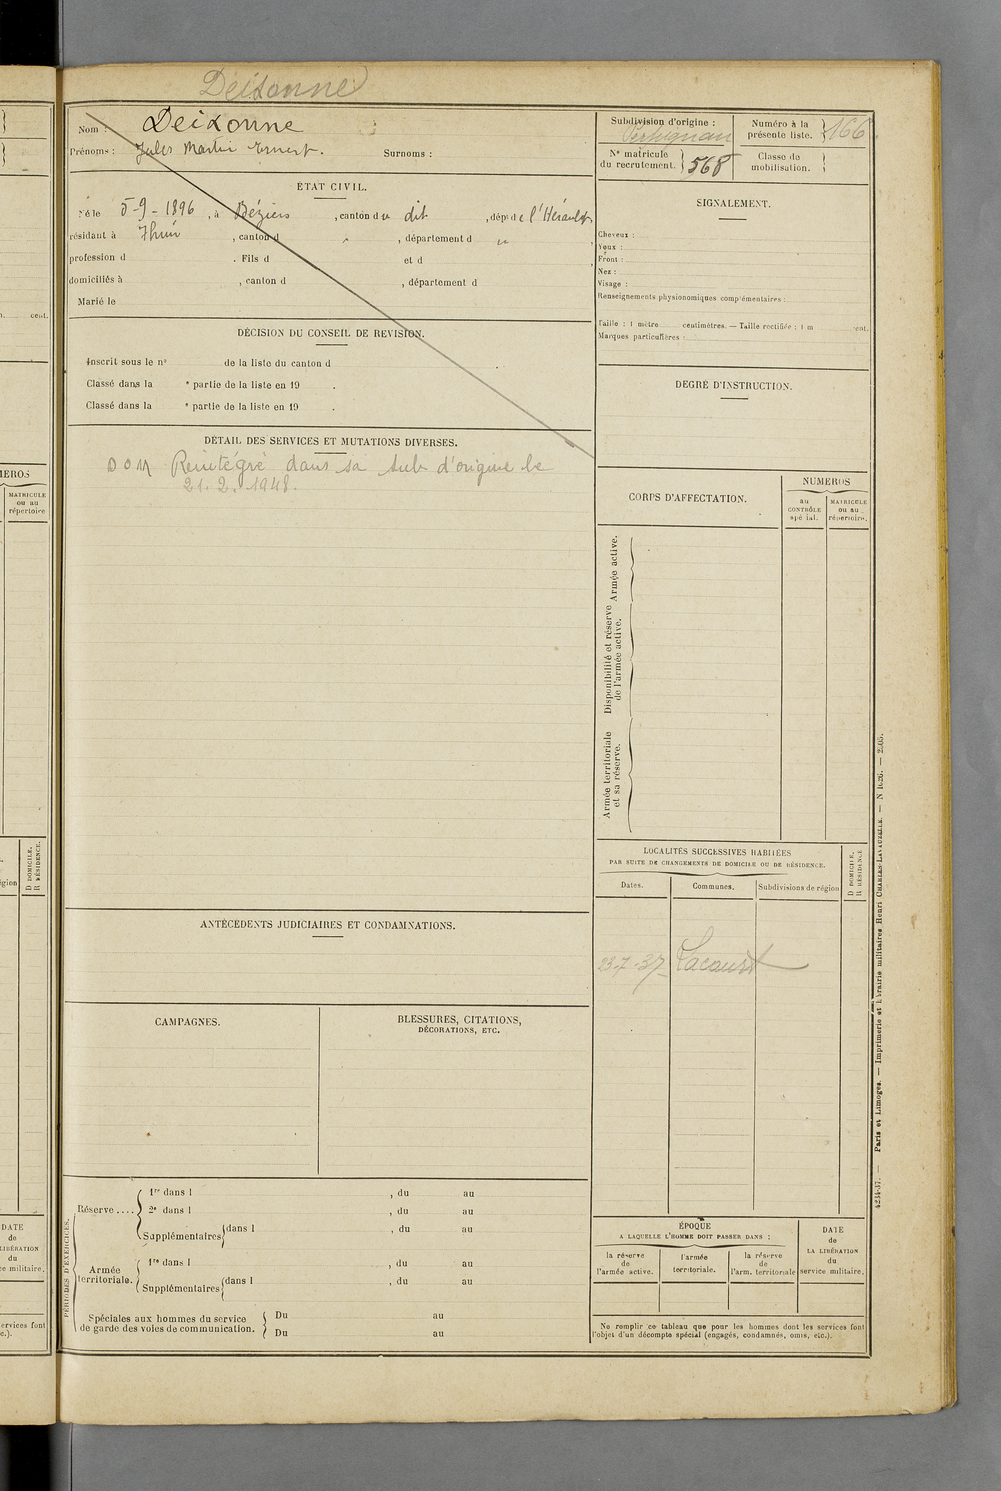 Deixonne
Nom : Deixonne
Prénoms : Jules Martin Ernest. Surnoms :
Subdivision d'origine : Perpignan
Numéro à la présente liste. 166
N° matricule du recrutement. 568
Classe de mobilisation.
ÉTAT CIVIL.
Né le 5-9-1896, à Béziers, canton du dit, dépt de l'Hérault,
résidant à Thuir, canton d ", département d "
profession d . Fils d et d
domiciliés à , canton d , département d
Marié le
DÉCISION DU CONSEIL DE REVISION.
Inscrit sous le n° de la liste du canton d
Classé dans la e partie de la liste en 19 .
Classé dans la e partie de la liste en 19 .
DÉTAIL DES SERVICES ET MUTATIONS DIVERSES.
DOM Réintégré dans sa sub d'origine le
21.2.1948.
ANTÉCÉDENTS JUDICIAIRES ET CONDAMNATIONS.
CAMPAGNES.
BLESSURES, CITATIONS,
DÉCORATIONS, ETC.
PÉRIODES D'EXERCICES.
Réserve ....
1re dans l , du au
2e dans l , du au
Supplémentaires dans l , du au
Armée territoriale.
1re dans l , du au
Supplémentaires dans l , du au
Spéciales aux hommes du service
de garde des voies de communication.
Du au
Du au
SIGNALEMENT.
Cheveux :
Yeux :
Front :
Nez :
Visage :
Renseignements physionomiques complémentaires :
Taille : 1 mètre centimètres. — Taille rectifiée : 1 m cent.
Marques particulières :
DEGRÉ D'INSTRUCTION.
CORPS D'AFFECTATION.
NUMÉROS
au CONTRÔLE spécial.
MATRICULE ou au répertoire.
Armée active.
Disponibilité et réserve de l'armée active.
Armée territoriale et sa réserve.
LOCALITÉS SUCCESSIVES HABITÉES
PAR SUITE DE CHANGEMENTS DE DOMICILE OU DE RÉSIDENCE.
D DOMICILE.
R RÉSIDENCE
Dates. Communes. Subdivisions de région
23-7-37
ÉPOQUE
A LAQUELLE L'HOMME DOIT PASSER DANS :
la réserve de l'armée active.
l'armée territoriale.
la réserve de l'arm. territoriale
DATE de LA LIBÉRATION du service militaire.
Ne remplir ce tableau que pour les hommes dont les services font
l'objet d'un décompte spécial (engagés, condamnés, omis, etc.).
4234-37. — Paris et Limoges. — Imprimerie et librairie militaires Henri CHARLES-LAVAUZELLE.
MATRICULE
ou au
répertoire
D DOMICILE.
R RÉSIDENCE.
DATE
de
LIBÉRATION
du